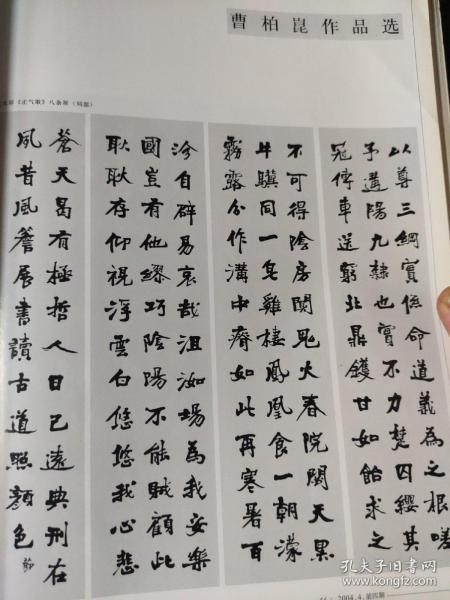 曹柏崑作品选
《正气歌》八条屏（局部）
以尊三綱實係命道義為之根嗟
予遘陽九隸也實不力楚囚纓其
冠傳車送窮北鼎鑊甘如飴求之
不可得陰房闃鬼火春院閟天黑
牛驥同一皂雞棲鳳凰食一朝濛
霧露分作溝中瘠如此再寒暑百
沴自辟易哀哉沮洳場為我安樂
國豈有他繆巧陰陽不能賊顧此
耿耿存仰視浮雲白悠悠我心悲
蒼天曷有極哲人日已遠典刑在
夙昔風簷展書讀古道照顏色 節
2004.4.第四期
孔夫子旧书网